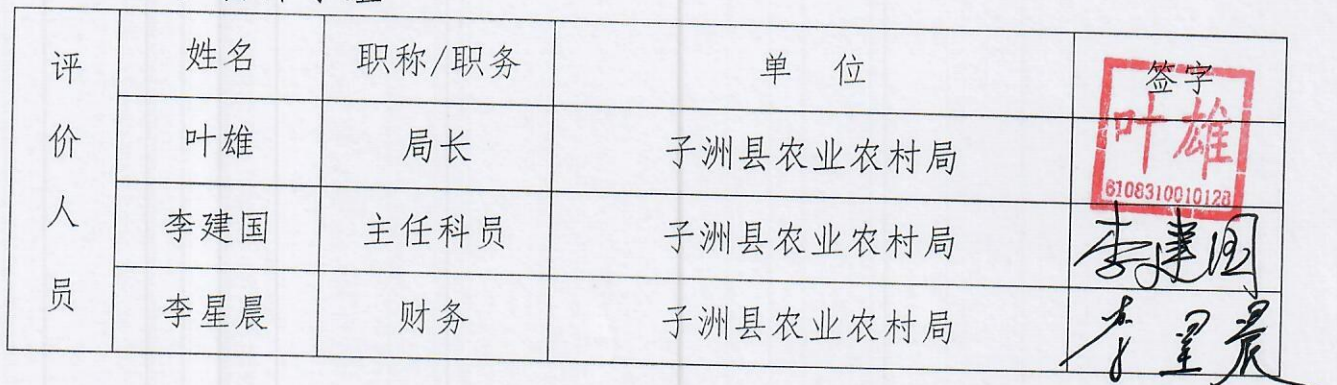 评价人员
姓名 职称/职务 单 位 签字
叶雄 局长 子洲县农业农村局 叶雄
6108310010128
李建国 主任科员 子洲县农业农村局 李建国
李星晨 财务 子洲县农业农村局 李星晨